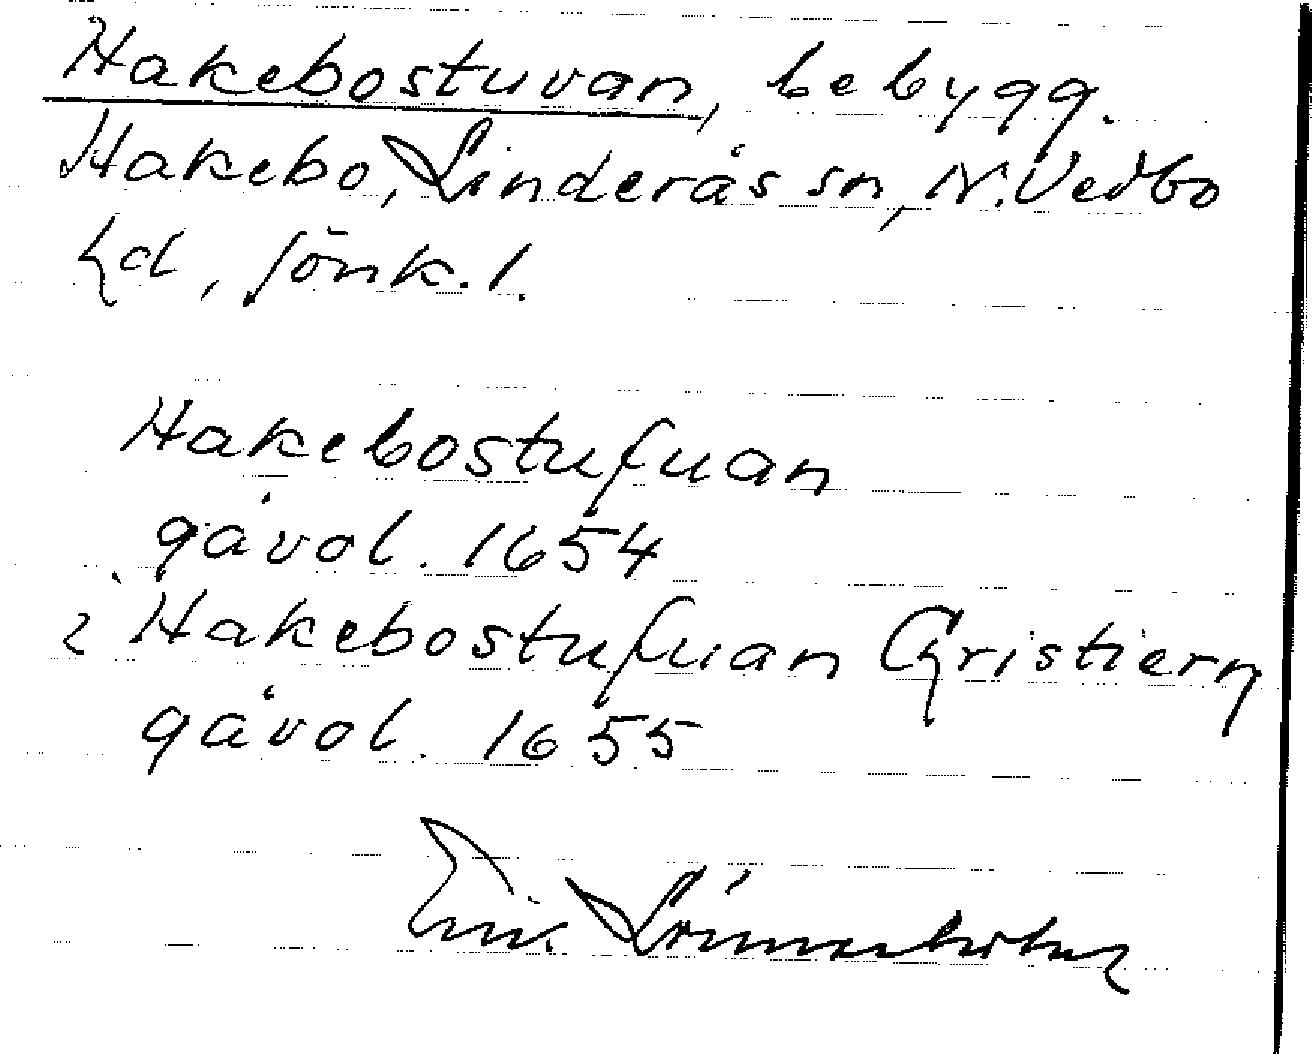 Hakebostuvan, bebygg.
Hakebo, Linderås sn, N. Vedbo
hd, Jönk. l.
Hakebostufuan
gåvol. 1654
i Hakebostufuan Christiern
gåvol. 1655